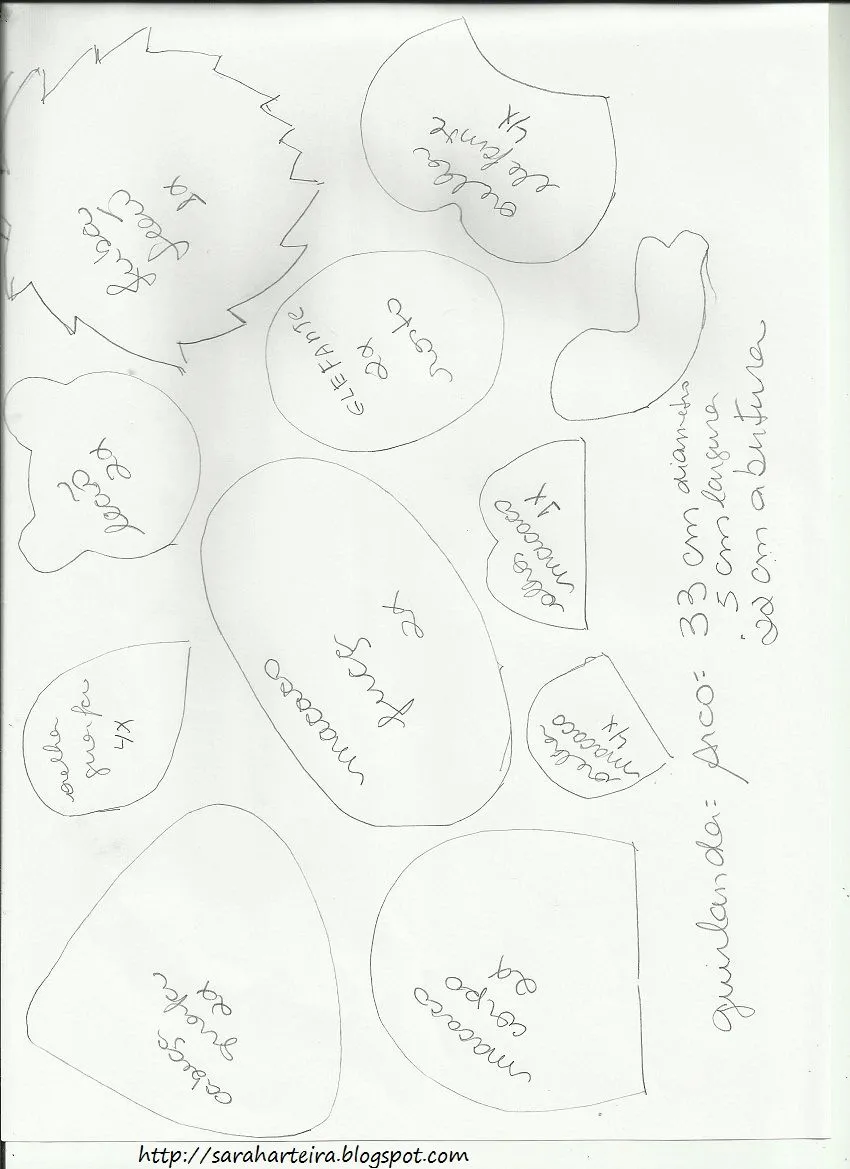 juba
leão
1x
orelha
elefante
4x
ELEFANTE
2x
rosto
leão
2x
orelha
girafa
4x
macaco
2x
olhos
macaco
1x
orelha
macaco
4x
cabeça
girafa
2x
macaco
corpo
2x
guirlanda= Arco= 33 cm diametro
5 cm largura
22 cm abertura
http://saraharteira.blogspot.com